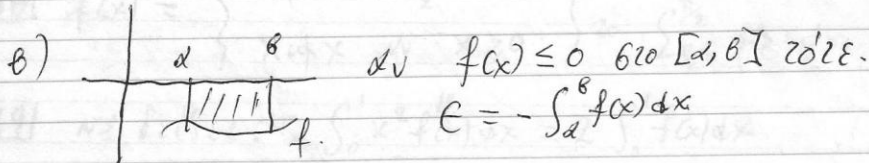 β) α β αν f(x) ≤ 0 στο [α,β] τότε.
f. Ε = -∫_α^β f(x) dx